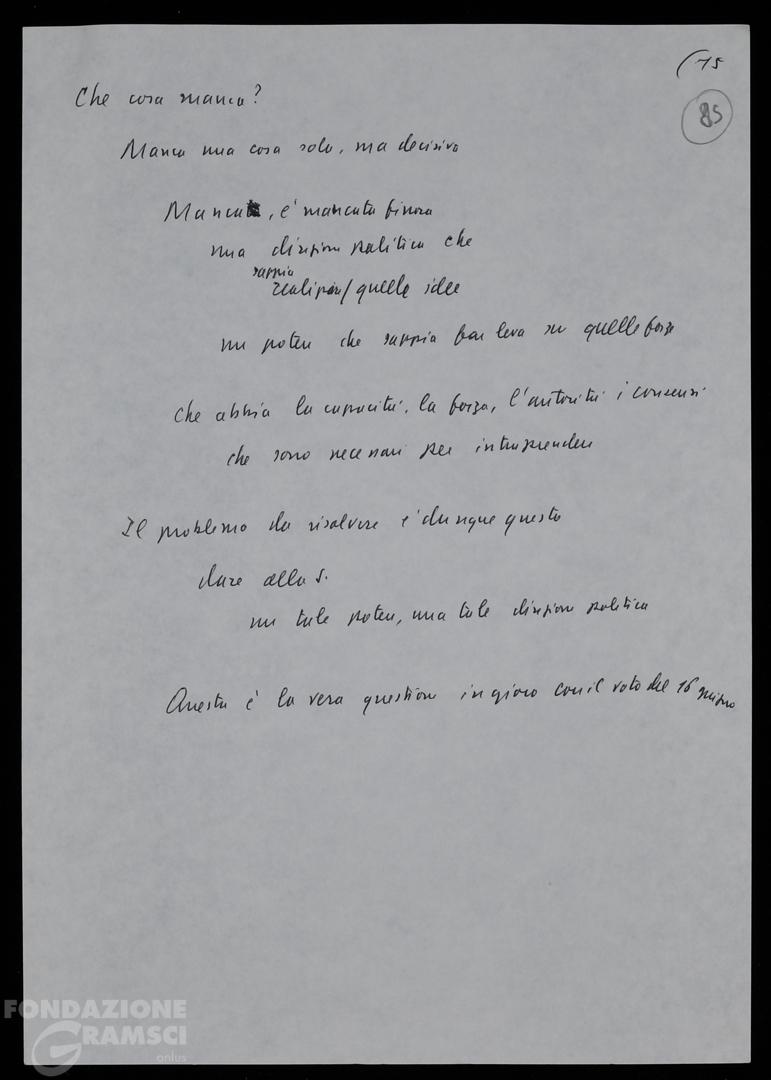 (15
85
Che cosa manca?
Manca una cosa sola, ma decisiva
Manca, è mancata finora
una direzione politica che
sappia
realizzare/quelle idee
un potere che sappia far leva su quelle forze
che abbia la capacità, la forza, l'autorità i consensi
che sono necessari per intraprendere
Il problema da risolvere è dunque questo
dare alla S.
un tale potere, una tale direzione politica
Questa è la vera questione in gioco con il voto del 16 giugno
FONDAZIONE
GRAMSCI
onlus